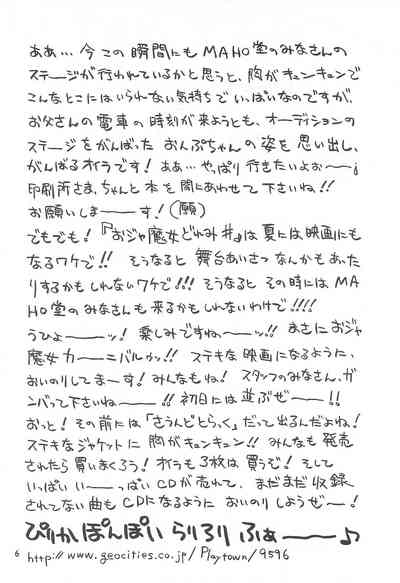 ああ…今この瞬間にもMAHO堂のみなさんの
ステージが行われているかと思うと、胸がキュンキュンで
こんなとこにはいられない気持ちで いっぱいなのですが、
お父さんの電車の時刻が来ようとも、オーディションの
ステージをがんばった おんぷちゃんの姿を思い出し、
がんばるオイラです！ああ…やっぱり行きたいよぉ〜〜
印刷所さま、ちゃんと本を間にあわせて下さいね!!
お願いしま――す！（願）
でもでも！『おジャ魔女どれみ#』は夏には映画にも
なるワケで!! そうなると 舞台あいさつなんかもあった
りするかもしれないワケで!!! そうなると その時には MA
HO堂のみなさんも来るかもしれないわけで!!!!
うひょ――ッ！楽しみですね――ッ!! まさにおジャ
魔女カーニバルッ!! ステキな映画になるように、
おいのりしてま―す！みんなもね！スタッフのみなさん、ガ
ンバって下さいね――！初日には並ぶぜ――!!
おっと！その前には「さうんどとらっく」だって出るんだよね！
ステキなジャケットに胸がキュンキュン!! みんなも発売
されたら買いまくろう！オイラも3枚は買うぞ！そして
いっぱいい――っぱいCDが売れて、まだまだ収録
されてない曲もCDになるように おいのりしようぜ―！
ぴりかぽんぽい らりろり ふぁ――♪
6 http://www.geocities.co.jp/Playtown/9596